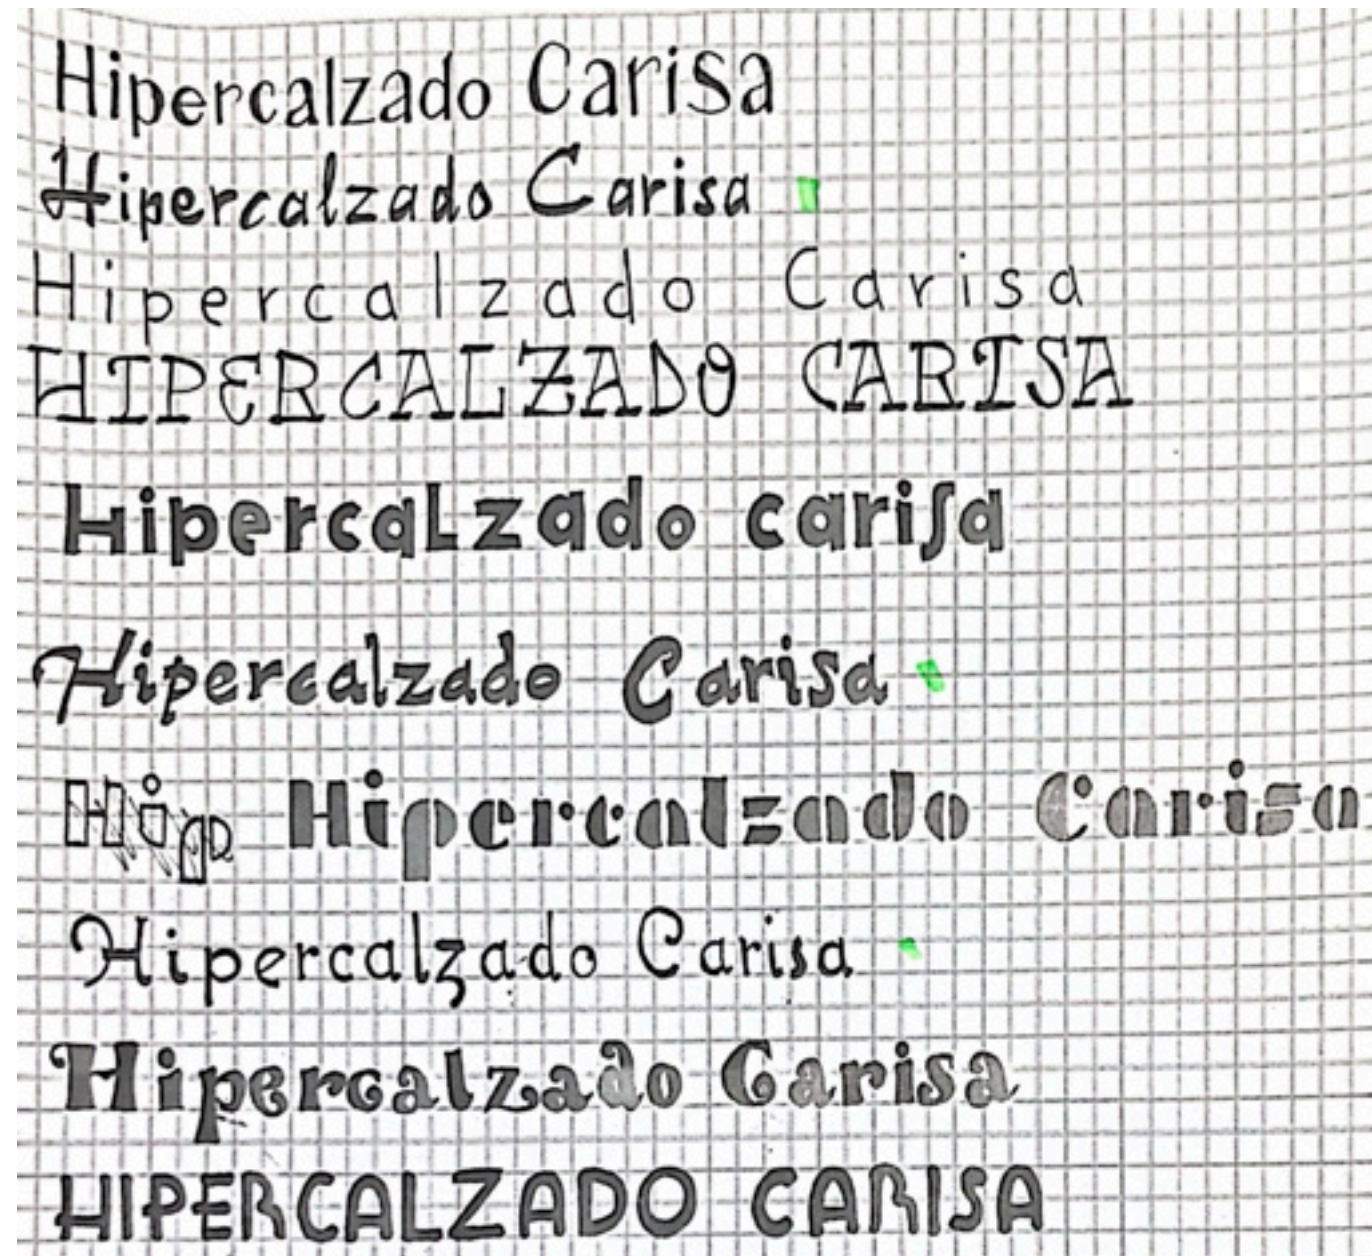 Hipercalzado Carisa
Hipercalzado Carisa
Hipercalzado Carisa
HIPERCALZADO CARISA
HipercaLzado cariſa
Hipercalzado Carisa
Hip Hipercalzado Carisa
Hipercalzado Carisa
Hipercalzado Carisa
HIPERCALZADO CARISA